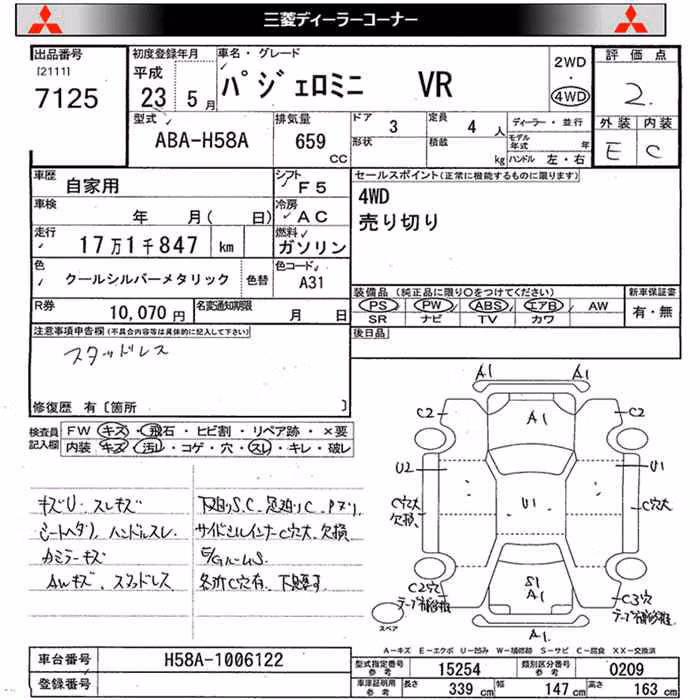 三菱ディーラーコーナー
出品番号 初度登録年月 車名・グレード 2WD 評価点
[2111] 平成
7125 23年 5月 パジェロミニ VR ・ 4WD 2.
型式 排気量 ドア 3 定員 4人 ディーラー・並行 外装 内装
ABA-H58A 659 CC 形状 積載 kg モデル年式 年 E C
ハンドル 左・右
車歴 自家用 シフト F5 セールスポイント(正常に機能するものに限ります)
車検 年 月( 日) 冷房 AC 4WD
走行 17万1千847 km 燃料 ガソリン 売り切り
色 クールシルバーメタリック 色替 色コード A31
R券 10,070円 名変通知期限 月 日 装備品(純正品に限り○をつけてください) 新車保証書
PS PW ABS エアB AW 有・無
SR ナビ TV カワ
注意事項申告欄(不具合内容等は具体的に記入して下さい) 後日品
スタッドレス
修復歴 有〔箇所 〕
検査員 FW キズ・飛石・ヒビ割・リペア跡・×要
記入欄 内装 キズ・汚レ・コゲ・穴・スレ・キレ・破レ
A1 A1
C2 A1 C2
U2 U1
U1
C穴大 欠損 C穴大
キズU.スレキズ 下廻りS.C.足廻りC.
シートヘタリ.ハンドルスレ. サイドシルインナーC穴大.欠損
カミラーキズ E/GルームS
AWキズ.スタッドレス 各所C穴有.下見要す
S1
A1
C2穴 C3穴
テープ補修確 テープ補修確
スペア A1.
A−キズ E−エクボ U−凹み W−補修跡 S−サビ C−腐食 XX−交換済
車台番号 H58A-1006122 型式指定番号 参考 15254 類別区分番号 参考 0209
登録番号 車庫証明用 参考 長さ 339 cm 幅 147 cm 高さ 163 cm